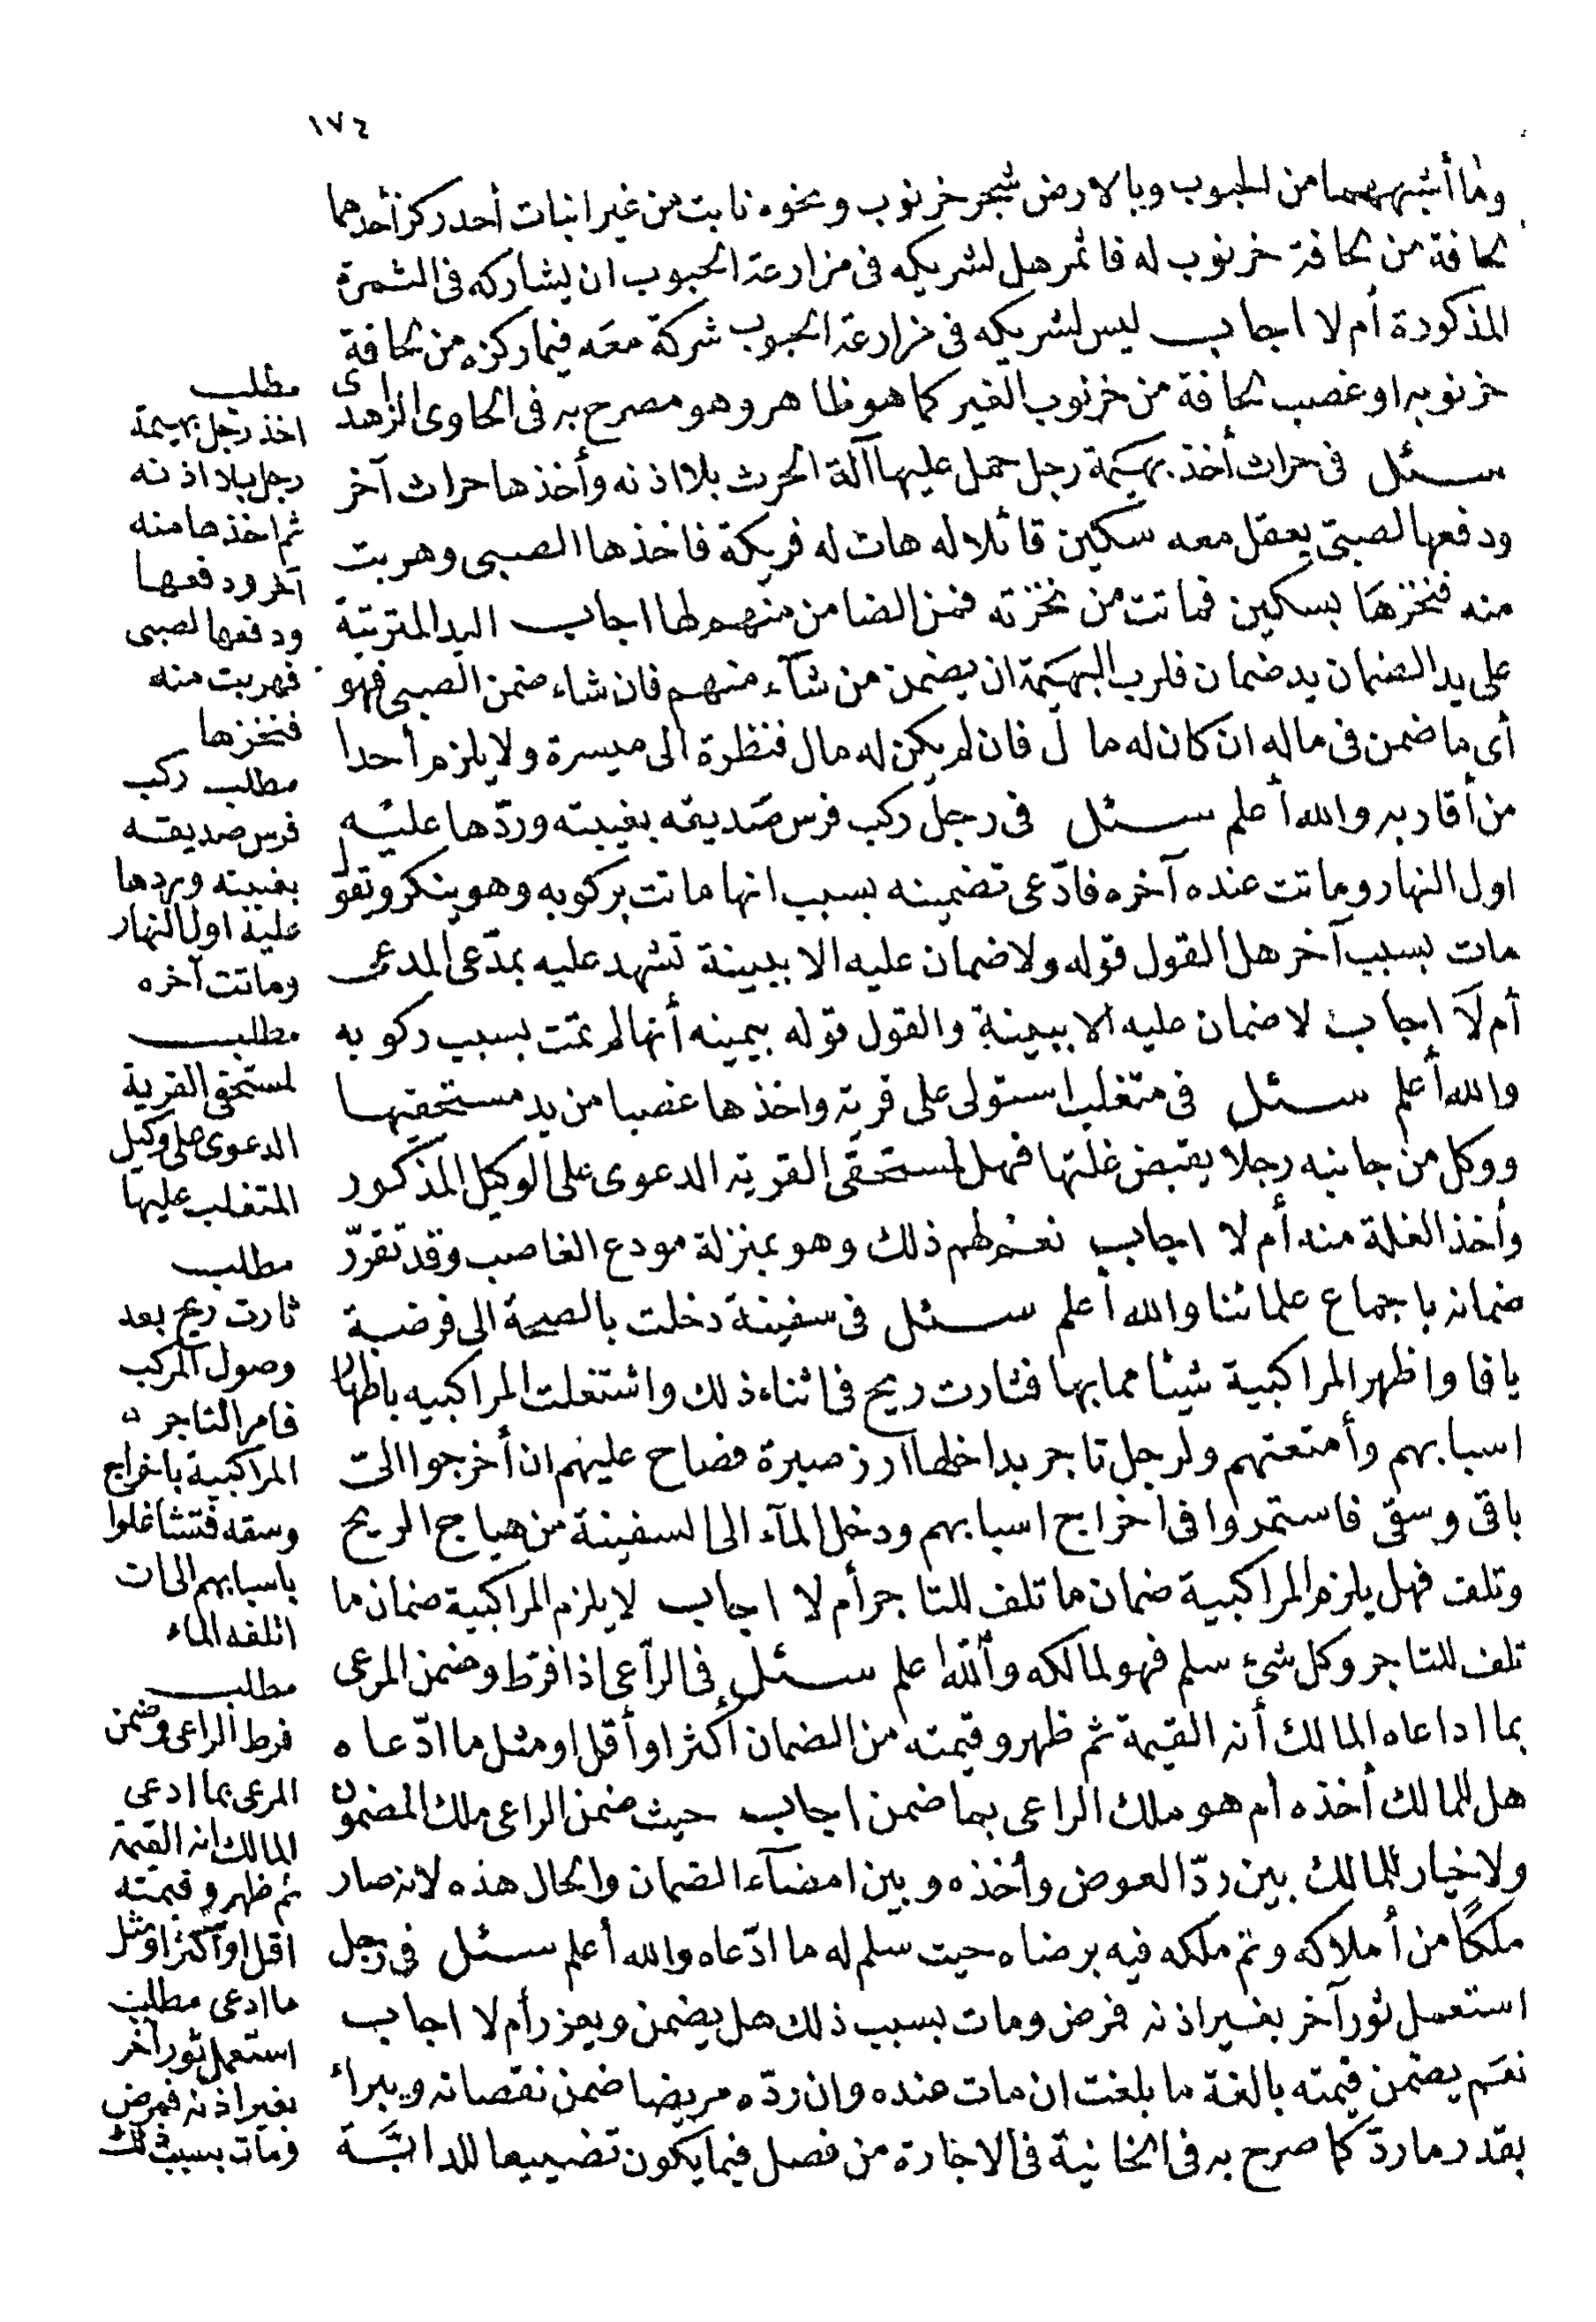 ١٧٤
وما أشبههما من الحبوب وبالارض شجر خرنوب ونحوه نابت من غير انبات أحد ركز أحدهما
نحافة من نحافة خرنوب له فاثمر هل لشريكه فى مزارعة الحبوب ان يشاركه فى الثمرة
المذكورة أم لا اجاب ليس لشريكه فى مزارعة الحبوب شركة معه فيما ركزه من نحافة
خرنوبه او غصب نحافة من خرنوب الغير كما هو ظاهر وهو مصرح به فى الحاوى الزاهدى
سئل فى حراث أخذ بهيمة رجل حمل عليها آلة الحرث بلا اذنه وأخذها حراث آخر
ودفعها لصبىّ يعقل معه سكين قائلا له هات له فريكة فاخذها الصبى وهربت
منه فنخزها بسكين فماتت من نخزته فمن الضامن منهم لها اجاب اليد المترتبة
على يد الضمان يد ضمان فلرب البهيمة ان يضمن من شآء منهم فان شاء ضمن الصبى فهو
أى ما ضمن فى ماله ان كان له مال فان لم يكن له مال فنظرة الى ميسرة ولا يلزم أحدا
من أقاربه والله أعلم سئل فى رجل ركب فرس صديقه بغيبته وردّها عليه
اول النهار وماتت عنده آخره فادّعى تضمينه بسبب انها ماتت بركوبه وهو ينكر وتقول
مات بسبب آخر هل القول قوله ولا ضمان عليه الا ببينة تشهد عليه بمدّعى المدعى
أم لآ اجاب لا ضمان عليه الا ببينة والقول قوله بيمينه أنها لم تمت بسبب ركوبه
والله أعلم سئل فى متغلب استولى على قرية واخذها غصبا من يد مستحقيها
ووكل من جانبه رجلا يقبض غلتها فهل لمستحقى القرية الدعوى على الوكيل المذكور
وأخذ الغلة منه أم لا اجاب نعم لهم ذلك وهو بمنزلة مودع الغاصب وقد تقرّر
ضمانه باجماع علمائنا والله أعلم سئل فى سفينة دخلت بالصحة الى فرضة
يافا واظهر المراكبية شيئا مما بها فثارت ريح فى اثناء ذلك واشتغلت المراكبيه باظهار
اسبابهم وأمتعتهم ولرجل تاجر بداخلها آرز صبرة فصاح عليهم ان أخرجوا الىّ
باقى وسقى فاستمروا فى اخراج اسبابهم ودخل المآء الى السفينة من هياج الريح
وتلف فهل يلزم المراكبية ضمان ما تلف للتاجر أم لا اجاب لا يلزم المراكبية ضمان ما
تلف للتاجر وكل شئ سلم فهو لمالكه والله اعلم سئل فى الرآعى اذا فرّط وضمن المرعى
بما اداعاه المالك أنه القيمة ثم ظهر وقيمته من الضمان أكثر او أقل او مثل ما ادّعاه
هل للمالك أخذه ام هو ملك الراعى بما ضمن اجاب حيث ضمن الراعى ملك المضمون
ولا خيار للمالك بين ردّ العوض وأخذه وبين امضآء الضمان والحال هذه لانه صار
ملكًا من أملاكه وتم ملكه فيه برضاه حيت سلم له ما ادّعاه والله أعلم سئل فى رجل
استعمل ثور آخر بغير اذنه فمرض ومات بسبب ذلك هل يضمن ويعزر أم لا اجاب
نعم يضمن قيمته بالغة ما بلغت ان مات عنده وان ردّه مريضا ضمن نقصانه ويبرأ
بقدر ما ردّ كما صرح به فى الخانية فى الاجارة من فصل فيما يكون تضييعا للدابّة
مطلب
اخذ رجل بهيمة
رجل بلا اذنه
ثم اخذها منه
آخر ودفعها
ودفعها لصبى
فهربت منه
فنخزها
مطلب ركب
فرس صديقه
بغيبته وردها
علية اول النهار
وماتت آخره
مطلب
لمستحقى القرية
الدعوى على وكيل
المتغلب عليها
مطلب
ثارت ريح بعد
وصول المركب
فامر التاجر
المراكبية باخراج
وسقه فتشاغلوا
باسبابهم الى ان
اتلفه الماء
مطلب
فرط الراعى وضمن
المرعى بما ادعى
المالك انه القيمة
ثم ظهر وقيمته
اقل او آكثر او مثل
ما ادعى مطلب
استعمل ثور آخر
بغير اذنه فمرض
ومات بسبب ذلك